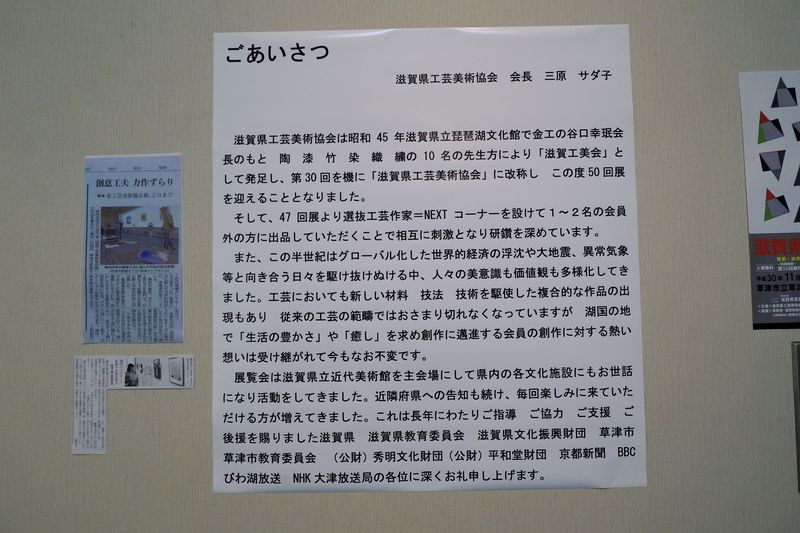 ごあいさつ
滋賀県工芸美術協会　会長　三原　サダ子
滋賀県工芸美術協会は昭和 45 年滋賀県立琵琶湖文化館で金工の谷口幸珉会
長のもと　陶　漆　竹　染　織　繍の 10 名の先生方により「滋賀工美会」と
して発足し、第 30 回を機に「滋賀県工芸美術協会」に改称し　この度 50 回展
を迎えることとなりました。
そして、47 回展より選抜工芸作家＝NEXT コーナーを設けて１～２名の会員
外の方に出品していただくことで相互に刺激となり研鑽を深めています。
また、この半世紀はグローバル化した世界的経済の浮沈や大地震、異常気象
等と向き合う日々を駆け抜けぬける中、人々の美意識も価値観も多様化してき
ました。工芸においても新しい材料　技法　技術を駆使した複合的な作品の出
現もあり　従来の工芸の範疇ではおさまり切れなくなっていますが　湖国の地
で「生活の豊かさ」や「癒し」を求め創作に邁進する会員の創作に対する熱い
想いは受け継がれて今もなお不変です。
展覧会は滋賀県立近代美術館を主会場にして県内の各文化施設にもお世話
になり活動をしてきました。近隣府県への告知も続け、毎回楽しみに来ていた
だける方が増えてきました。これは長年にわたりご指導　ご協力　ご支援　ご
後援を賜りました滋賀県　滋賀県教育委員会　滋賀県文化振興財団　草津市
草津市教育委員会　（公財）秀明文化財団（公財）平和堂財団　京都新聞　BBC
びわ湖放送　NHK 大津放送局の各位に深くお礼申し上げます。
創意工夫 力作ずらり
県工芸美術協会展、2日まで
滋賀県
平成30年11月
草津市立草